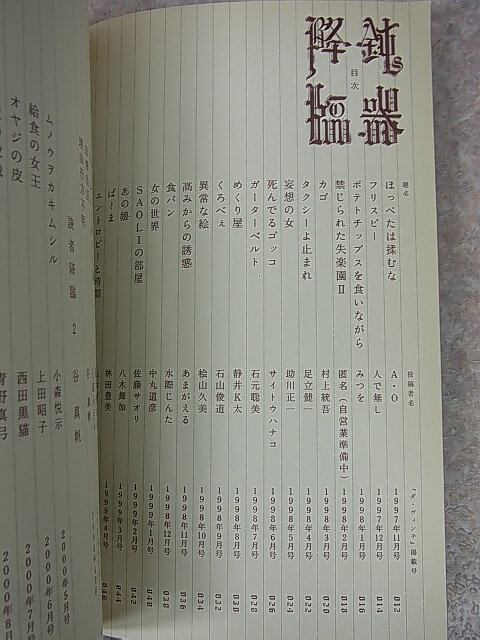 鈍器降臨
目次
題名 投稿者名 『ダ・ヴィンチ』掲載号
ほっぺたは揉むな A・O 1997年11月号 012
フリスビー 人で無し 1997年12月号 014
ポテトチップスを食いながら みつを 1998年1月号 016
禁じられた失楽園Ⅱ 匿名(自営業準備中) 1998年2月号 018
カゴ 村上統吾 1998年3月号 020
タクシーよ止まれ 足立健一 1998年4月号 022
妄想の女 助川正一 1998年5月号 024
死んでるゴッコ サイトウハナコ 1998年6月号 026
ガーターベルト 石元聡美 1998年7月号 028
めくり屋 静井K太 1998年8月号 030
くろべぇ 石山俊道 1998年9月号 032
異常な絵 桧山久美 1998年10月号 034
高みからの誘惑 あまがえる 1998年11月号 036
食パン 水際じんた 1998年12月号 038
女の世界 中丸道彦 1999年1月号 040
SAOLIの部屋 佐藤サオリ 1999年2月号 042
あの娘 八木舞加 1999年3月号 044
ぱーま 林田豊美 1999年4月号 046
エントロピーと時間
読者降臨 2
谷真帆 2000年5月号
ムノウヲカキムシル 小森悦示 2000年6月号
給食の女王 上田昭子 2000年7月号
オヤジの皮 西田黒猫 2000年8月
青野真弓